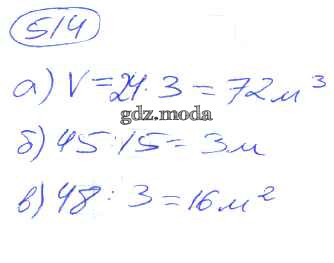 514
а) V = 24 · 3 = 72 м³
gdz.moda
б) 45 : 15 = 3м
в) 48 : 3 = 16 м²